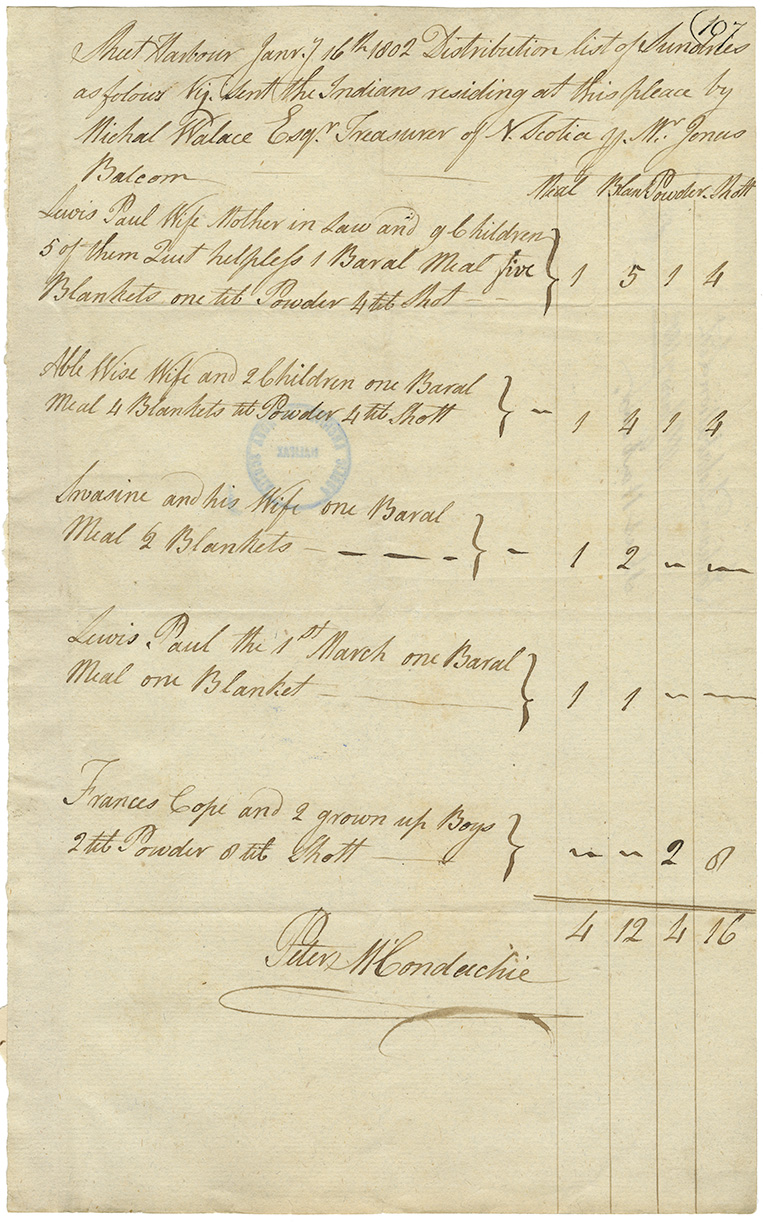 107
Sheet Harbour Janr.y 16th 1802 Distribution list of Sundries
as folows Viz. Sent the Indians residing at this pleace by
Michal Walace Esqr. Treasurer of N. Scotia pr Mr. Jonas
Balcom
Meal Blank Powder Shott
Lewis Paul Wife Mother in Law and 9 Children
5 of them Quit helpless 1 Baral Meal five
Blankets one lb Powder 4 lb Shot 1 5 1 4
Able Wise Wife and 2 Children one Baral
Meal 4 Blankets lb Powder 4 lb Shott 1 4 1 4
and his Wife one Baral
Meal 2 Blankets 1 2
Lewis Paul the 1st March one Baral
Meal one Blanket 1 1
Frances Cope and 2 grown up Boys
2 lb Powder 8 lb Shott 2 8
4 12 4 16
Peter McCondachie
PUBLIC ARCHIVES NOVA SCOTIA
HALIFAX